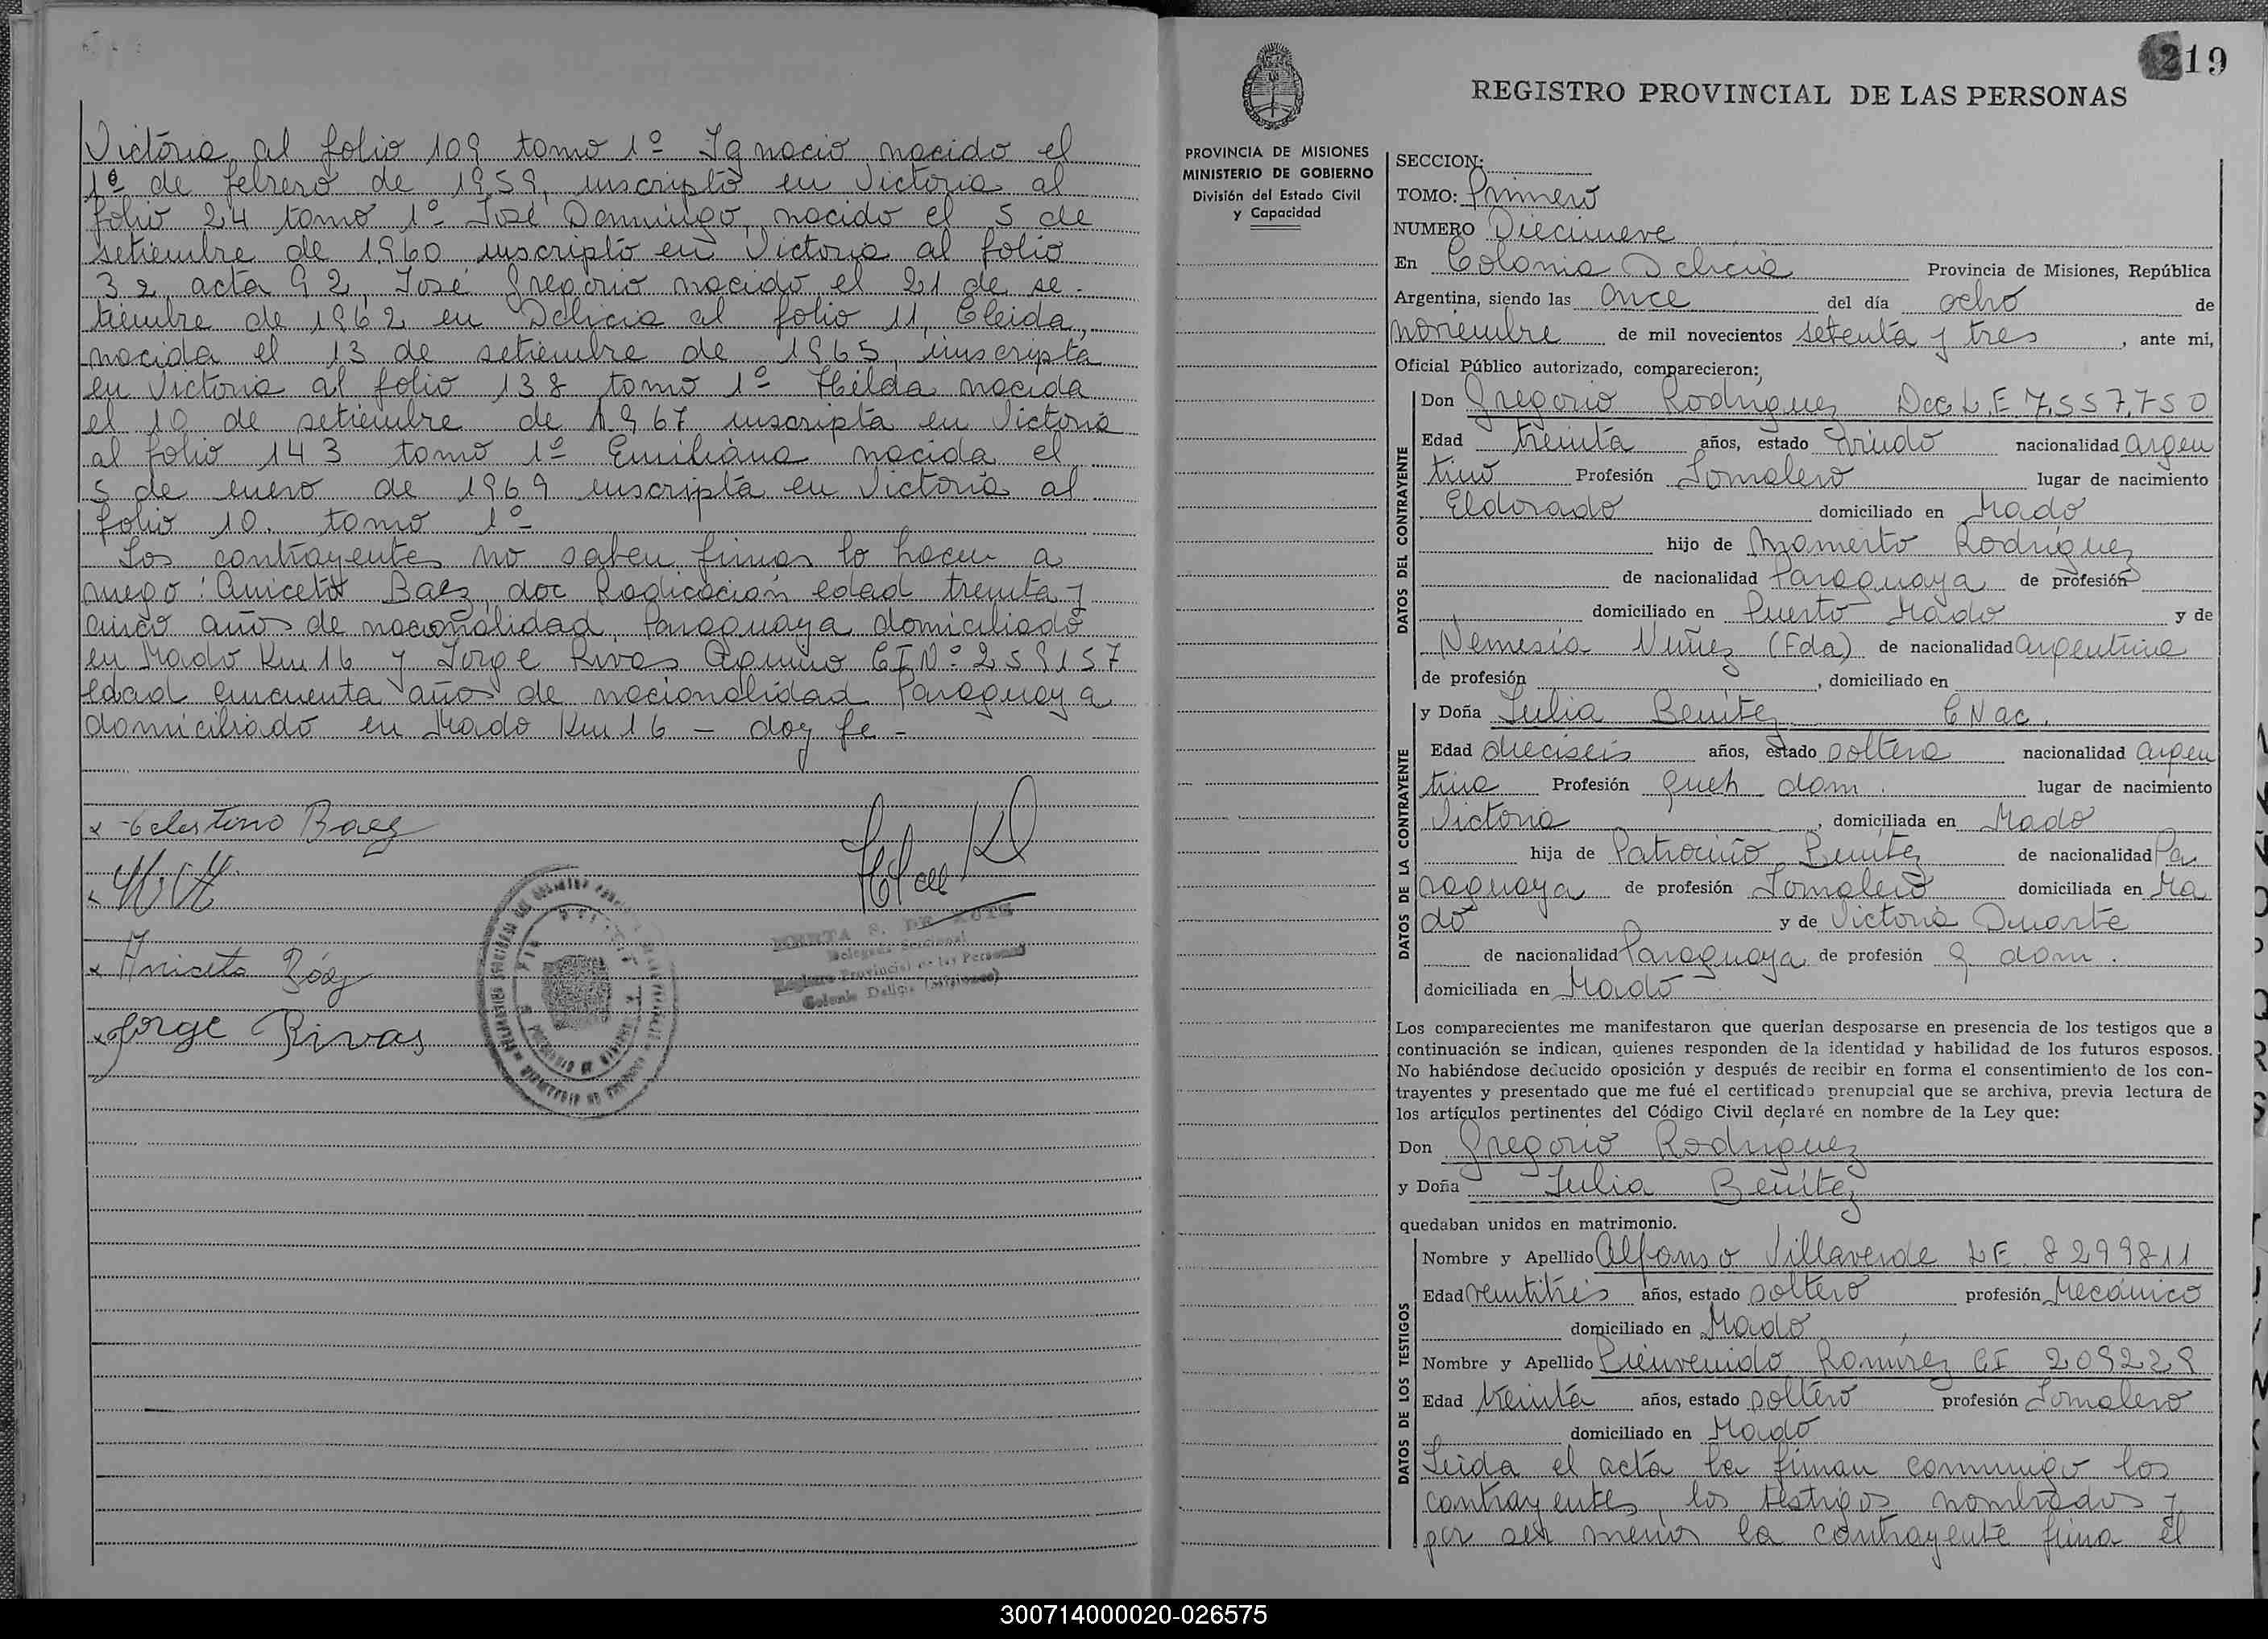 Victoria al folio 109 tomo 1º Ignacio nacido el
1º de febrero de 1959, inscripto en Victoria al
folio 24 tomo 1º José Domingo, nacido el 5 de
setiembre de 1960 inscripto en Victoria al folio
32 acta 92, José Gregorio nacido el 21 de se-
tiembre de 1962 en Delicia al folio 11, Eleida,
nacida el 13 de setiembre de 1965 inscripta
en Victoria al folio 138 tomo 1º Hilda nacida
el 10 de setiembre de 1967 inscripta en Victoria
al folio 143 tomo 1º Emiliana nacida el
5 de enero de 1969 inscripta en Victoria al
folio 10. tomo 1º
Los contrayentes no saben firmar lo hacen a
ruego: Aniceto Baez, doc Radicación edad treinta y
cinco años de nacionalidad Paraguaya domiciliado
en Mado Km 16 y Jorge Rivas Aquino CI Nº 259157
edad cincuenta años de nacionalidad Paraguaya
domiciliado en Mado Km 16 - doy fe -
x Celestino Baez
x Aniceto Báez
x Jorge Rivas
Delegada Seccional
Registro Provincial de las Personas
Colonia Delicia (Misiones)
219
REGISTRO PROVINCIAL DE LAS PERSONAS
PROVINCIA DE MISIONES
MINISTERIO DE GOBIERNO
División del Estado Civil
y Capacidad
SECCION:
TOMO: Primero
NUMERO Diecinueve
En Colonia Delicia Provincia de Misiones, República
Argentina, siendo las once del día ocho de
noviembre de mil novecientos setenta y tres, ante mi,
Oficial Público autorizado, comparecieron:
DATOS DEL CONTRAYENTE
Don Gregorio Rodriguez Doc L.E 7.557.750
Edad treinta años, estado viudo nacionalidad argen
tino Profesión Jornalero lugar de nacimiento
Eldorado domiciliado en Mado
hijo de Mamerto Rodriguez
de nacionalidad Paraguaya de profesión
domiciliado en Puerto Mado y de
Nemesia Nuñez (Fda) de nacionalidad argentina
de profesión , domiciliado en
DATOS DE LA CONTRAYENTE
y Doña Julia Benitez C Nac.
Edad dieciseis años, estado soltera nacionalidad argen
tina Profesión queh dom. lugar de nacimiento
Victoria , domiciliada en Mado
hija de Patrocinio Benitez de nacionalidad Pa
raguaya de profesión Jornalero domiciliada en Ma
do y de Victoria Duarte
de nacionalidad Paraguaya de profesión q dom.
domiciliada en Mado
Los comparecientes me manifestaron que querían desposarse en presencia de los testigos que a
continuación se indican, quienes responden de la identidad y habilidad de los futuros esposos.
No habiéndose deducido oposición y después de recibir en forma el consentimiento de los con-
trayentes y presentado que me fué el certificado prenupcial que se archiva, previa lectura de
los artículos pertinentes del Código Civil declaré en nombre de la Ley que:
Don Gregorio Rodriguez
y Doña Julia Benitez
quedaban unidos en matrimonio.
DATOS DE LOS TESTIGOS
Nombre y Apellido Alfonso Villaverde LE. 8299811
Edad veintitrés años, estado soltero profesión Mecánico
domiciliado en Mado
Nombre y Apellido Bienvenido Ramirez CI 209229
Edad treinta años, estado soltero profesión Jornalero
domiciliado en Mado
Leida el acta la firman conmigo los
contrayentes, los testigos nombrados y
por ser menor la contrayente firma el
300714000020-026575